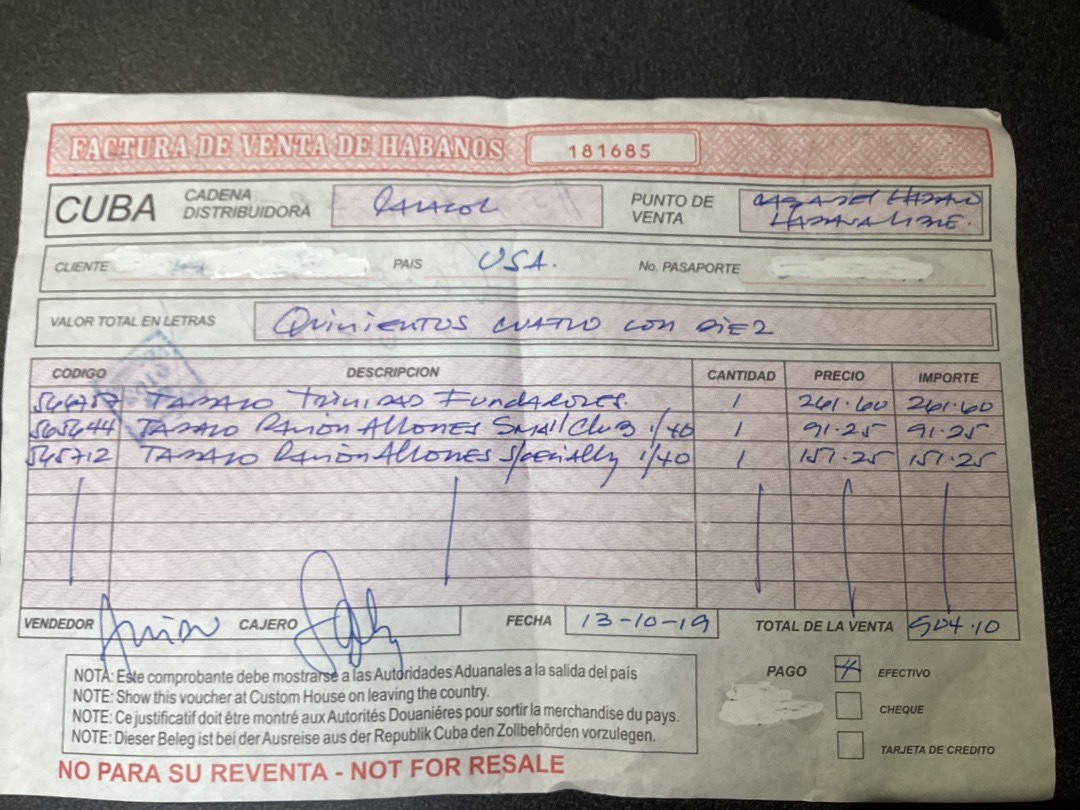 FACTURA DE VENTA DE HABANOS 181685
CUBA CADENA DISTRIBUIDORA CARACOL PUNTO DE VENTA CASA DEL HABANO HABANA LIBRE.
CLIENTE PAIS USA. No. PASAPORTE
VALOR TOTAL EN LETRAS QUINIENTOS CUATRO CON DIEZ
CODIGO DESCRIPCION CANTIDAD PRECIO IMPORTE
TABACO TRINIDAD FUNDADORES. 1 261.60 261.60
565644 TABACO RAMON ALLONES SMALL CLUB 1/40 1 91.25 91.25
545712 TABACO RAMON ALLONES Specially 1/40 1 151.25 151.25
VENDEDOR CAJERO FECHA 13-10-19 TOTAL DE LA VENTA 504.10
NOTA: Este comprobante debe mostrarse a las Autoridades Aduanales a la salida del país
NOTE: Show this voucher at Custom House on leaving the country.
NOTE: Ce justificatif doit être montré aux Autorités Douaniéres pour sortir la merchandise du pays.
NOTE: Dieser Beleg ist bei der Ausreise aus der Republik Cuba den Zollbehörden vorzulegen.
PAGO EFECTIVO
CHEQUE
TARJETA DE CREDITO
NO PARA SU REVENTA - NOT FOR RESALE